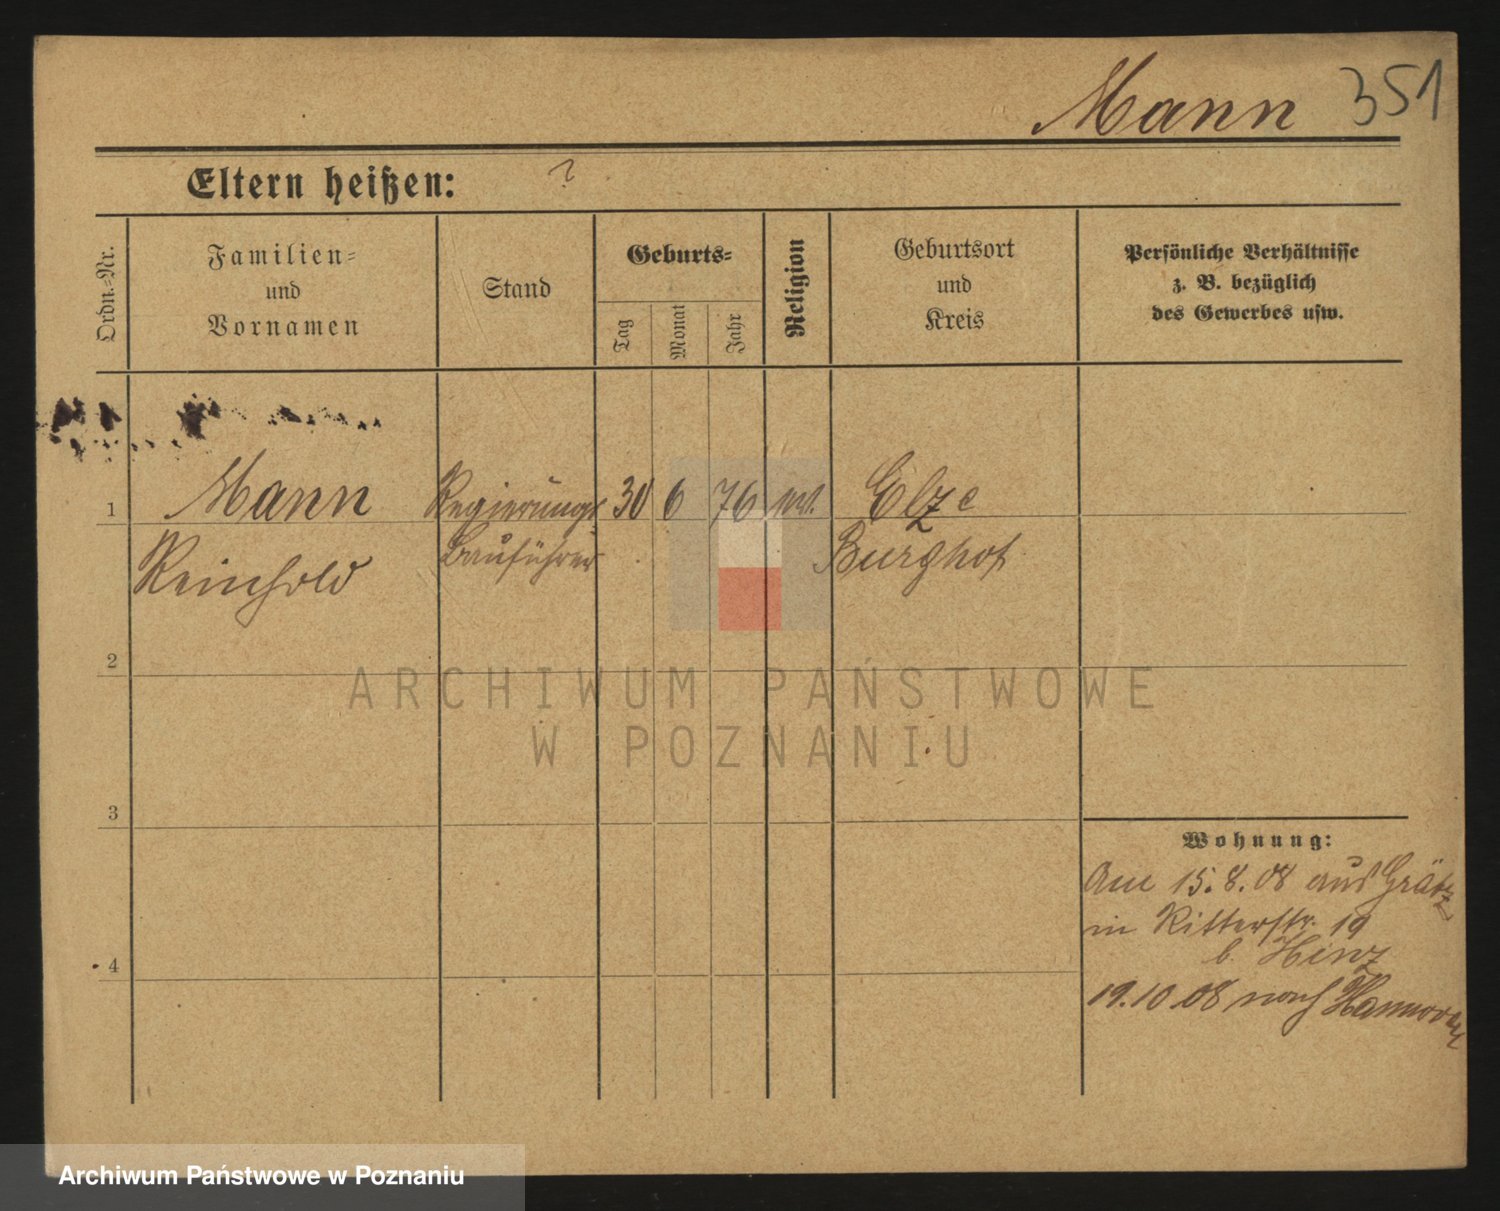 Mann 351
Eltern heißen: ?
Ordn.-Nr.
Familien-
und
Vornamen
Stand
Geburts-
Tag
Monat
Jahr
Religion
Geburtsort
und
Kreis
Persönliche Verhältnisse
z. B. bezüglich
des Gewerbes usw.
1 Mann Regierungs 30 6 76 Elze
Reinhold Bauführer Burghof
2
3
4
Wohnung:
Am 15.8.08 aus Grätz
in Ritterstr. 19
b. Hinz
19.10.08 nach Hannover
ARCHIWUM PAŃSTWOWE
W POZNANIU
Archiwum Państwowe w Poznaniu